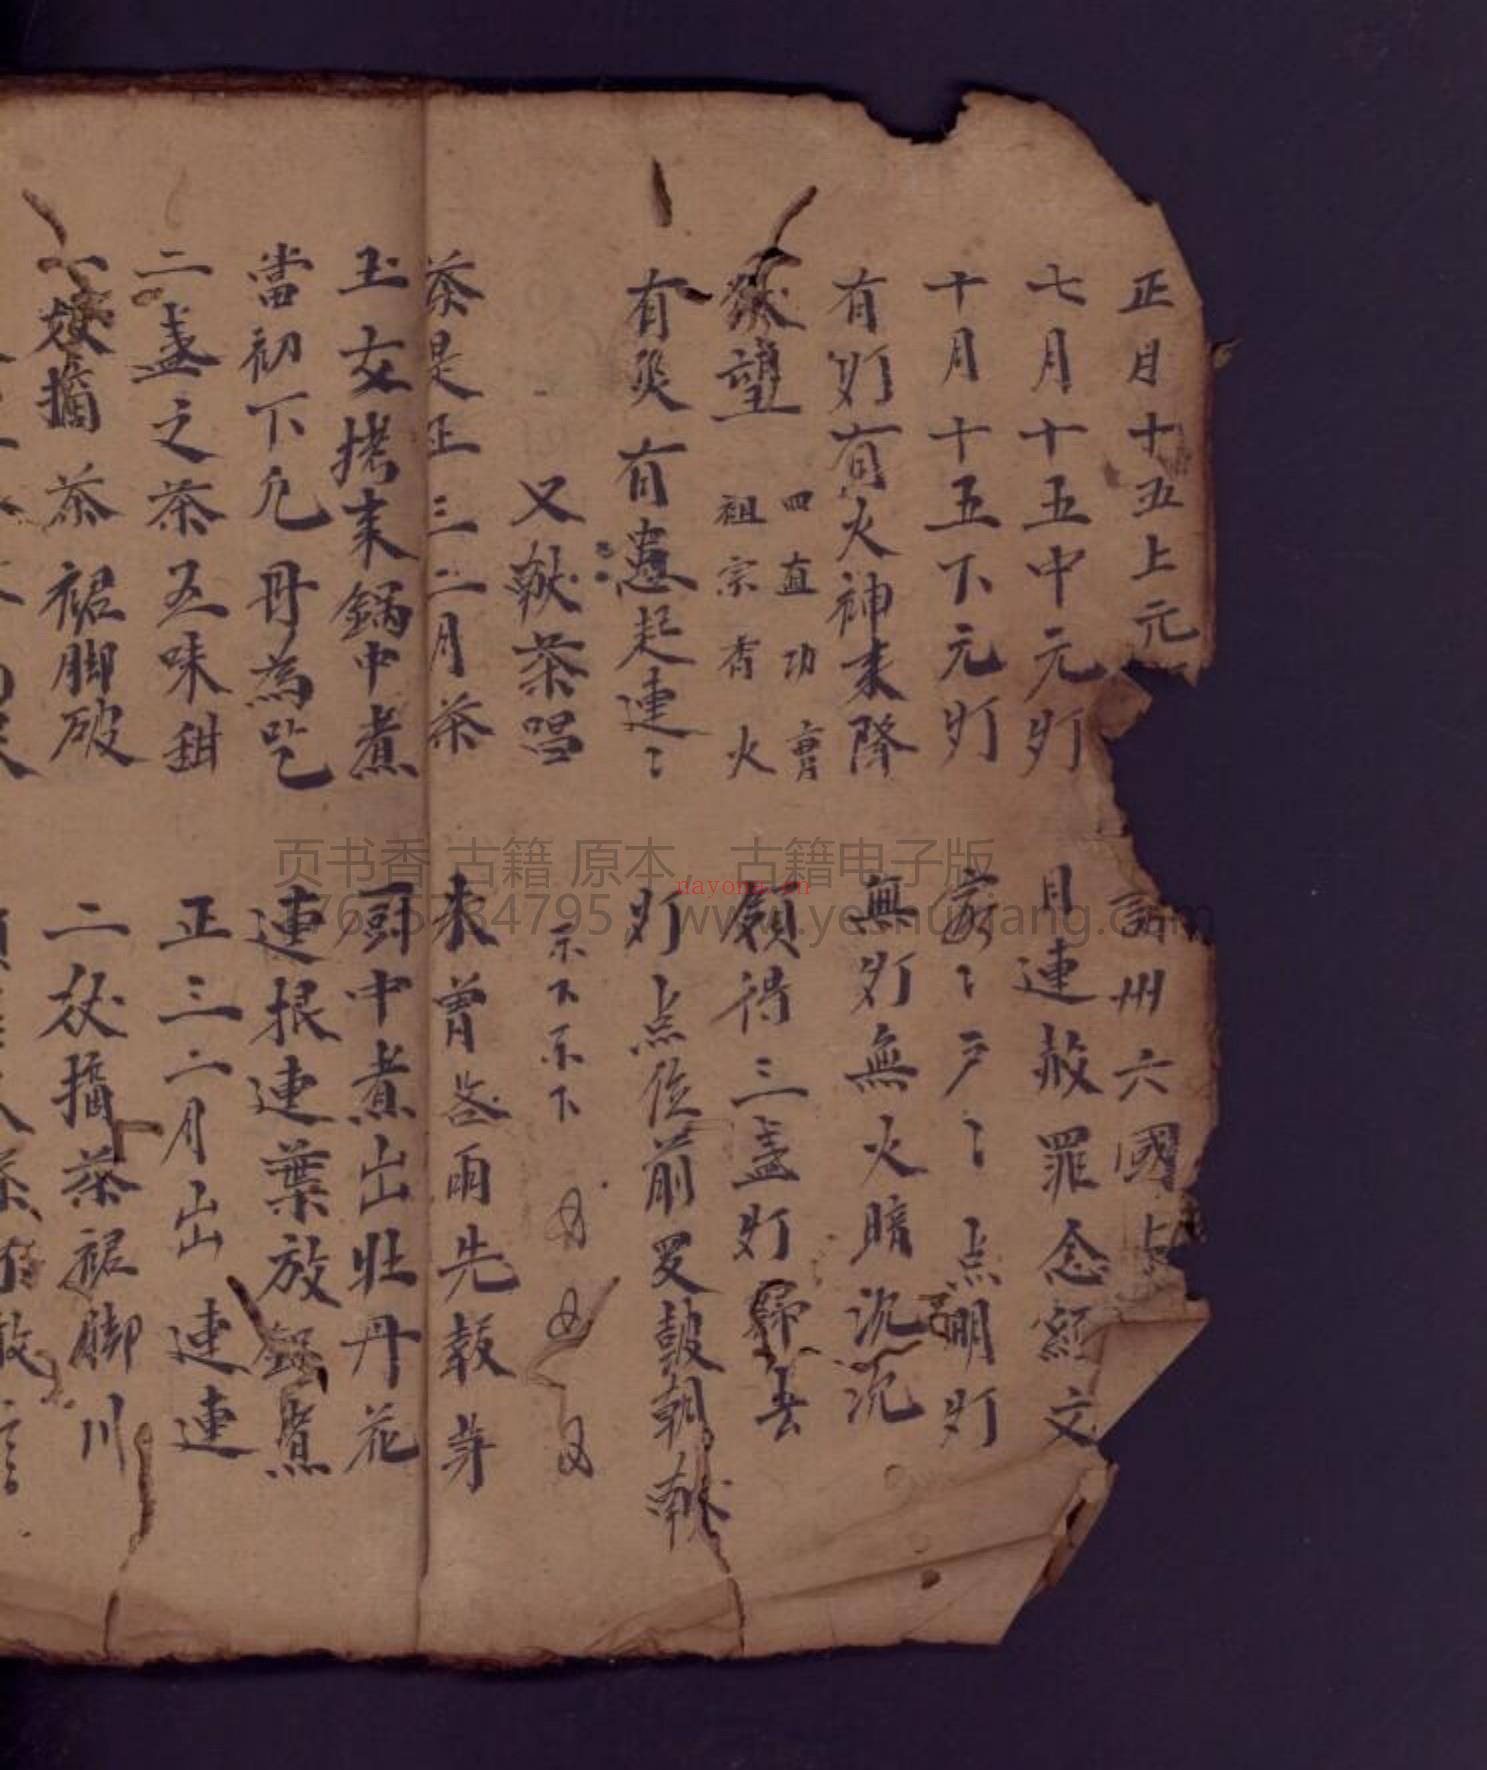 正月十五上元 諸州六國上
七月十五中元灯 目連赦罪念經文
十月十五下元灯 家〻戸〻点明灯
有灯有火神来降 無灯無火暗沉沉
献望 四直功曹 祖宗香火 願得三盞灯歸去
有災有愆起連〻 灯点位前罗鼓朝献
又献茶唱
茶是正三二月茶 未曾谷雨先發芽
玉女捞来鍋中煮 頭中煮出牡丹花
當初下凢丹為 連根連葉放鍋煮
二盞之茶五味甜 正三二月出連連
一奻摘茶裙脚破 二奻摘茶裙脚川
页书香 古籍 原本，古籍电子版
www.yeshuxiang.com
nayona.cn